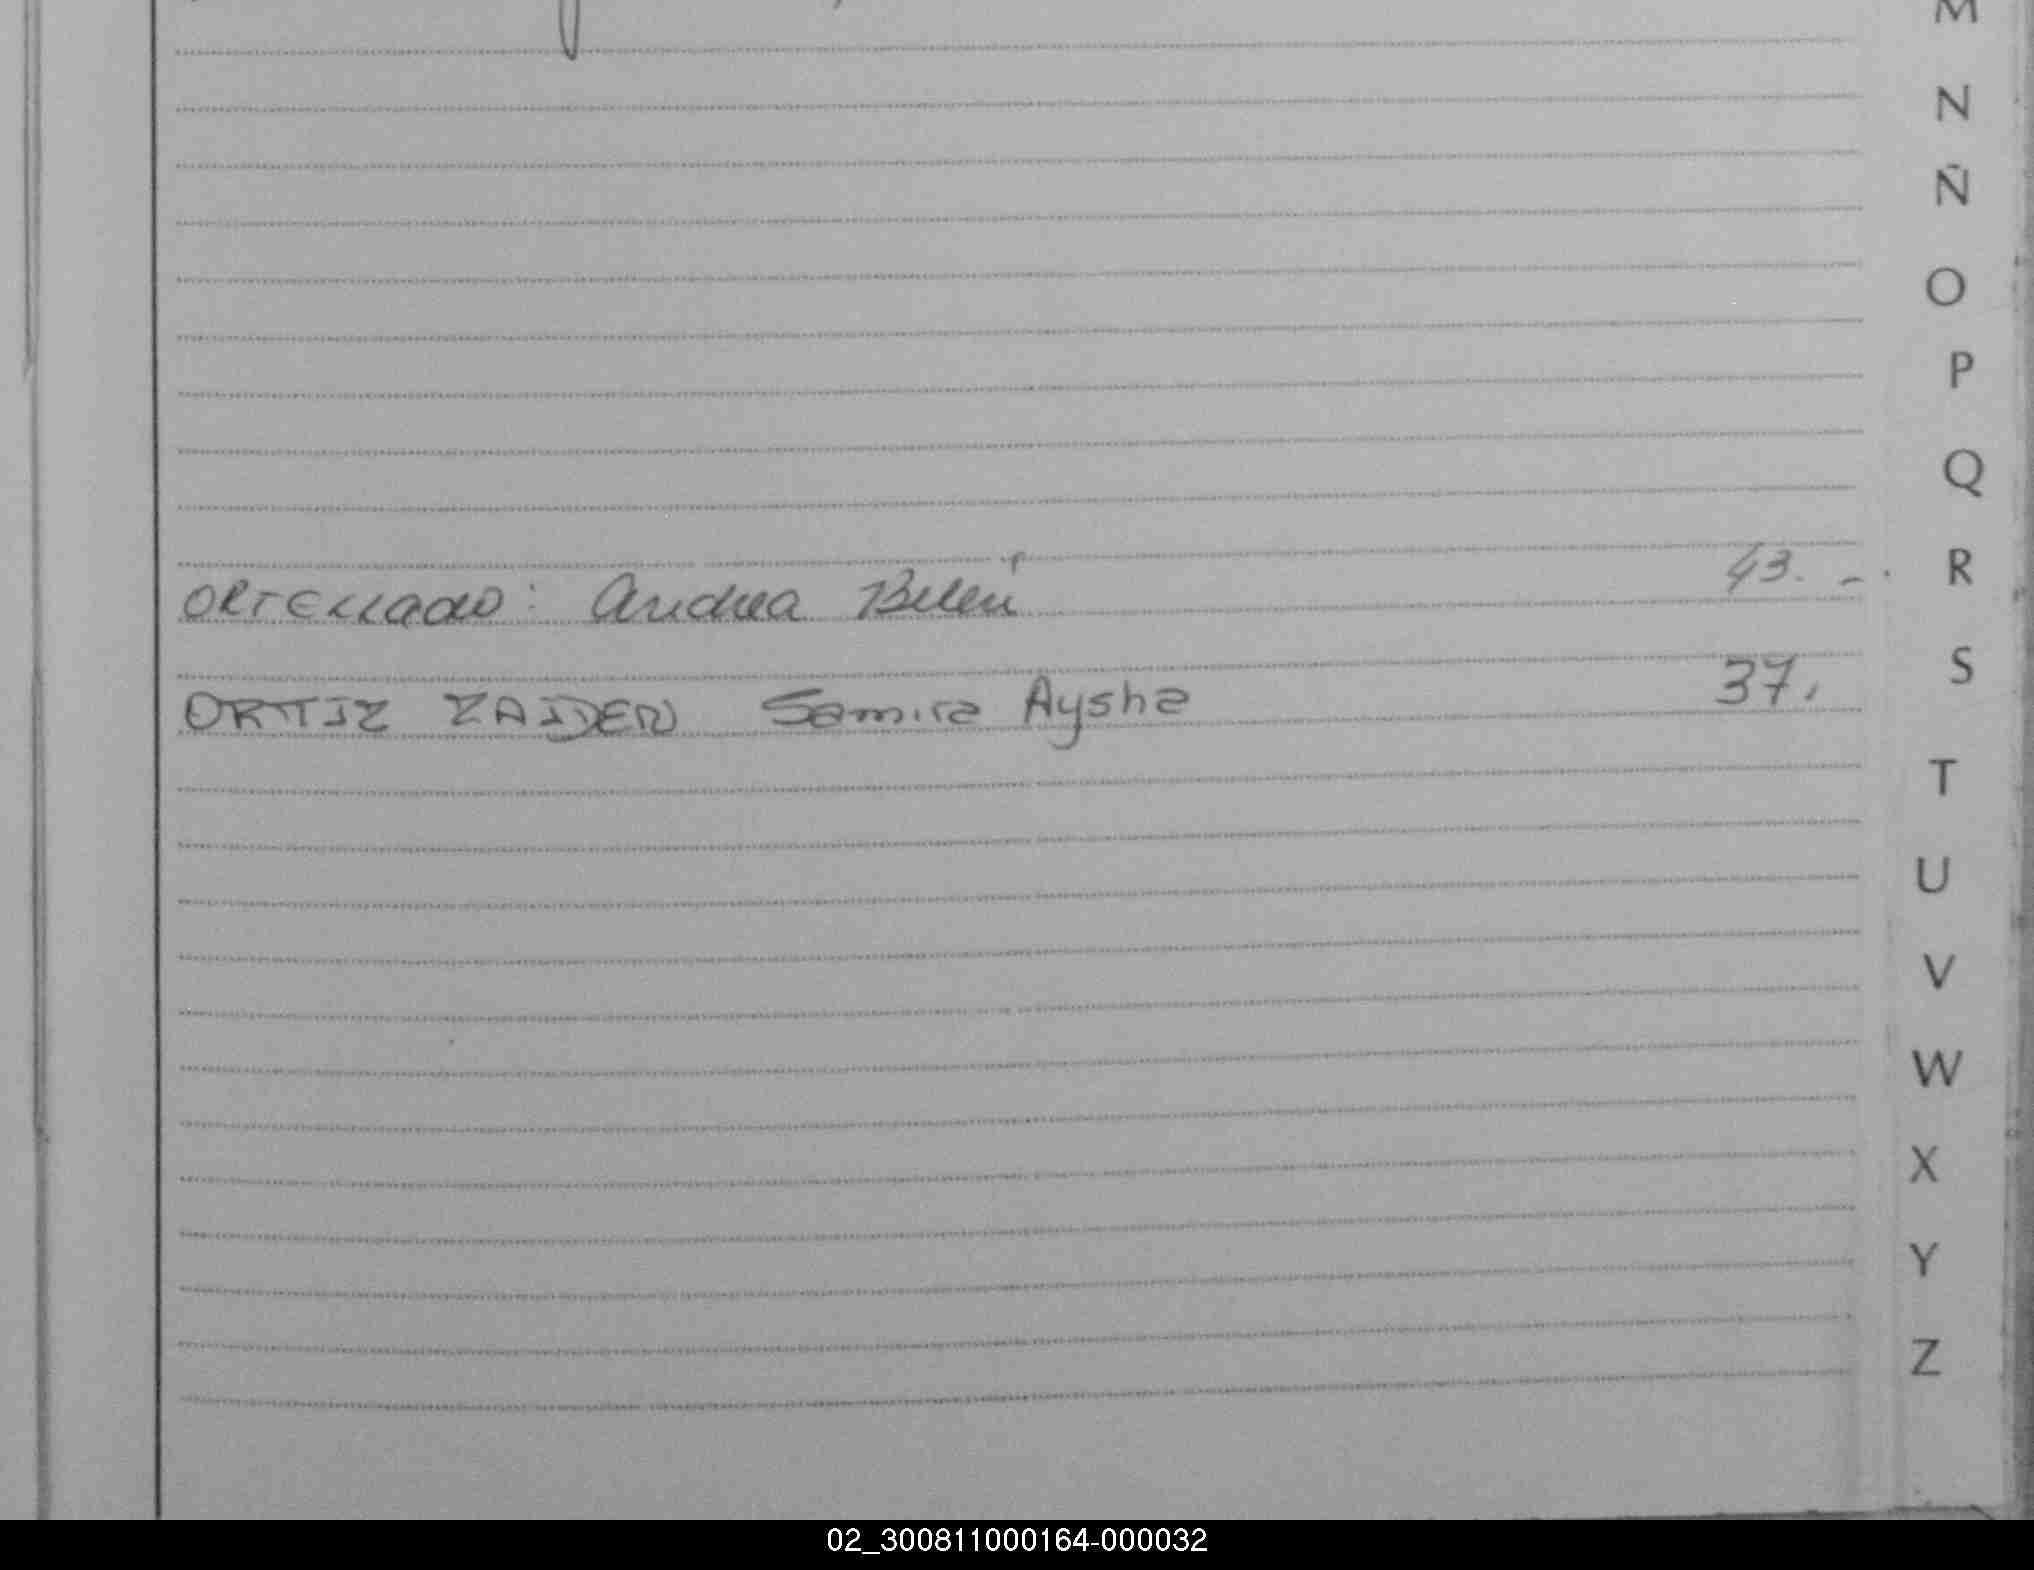 M
N
Ñ
O
P
Q
R
S
T
U
V
W
X
Y
Z
ORTELLADO: Andrea Belén 43.-.
ORTIZ ZAIDEN Samira Aysha 37.
02_300811000164-000032